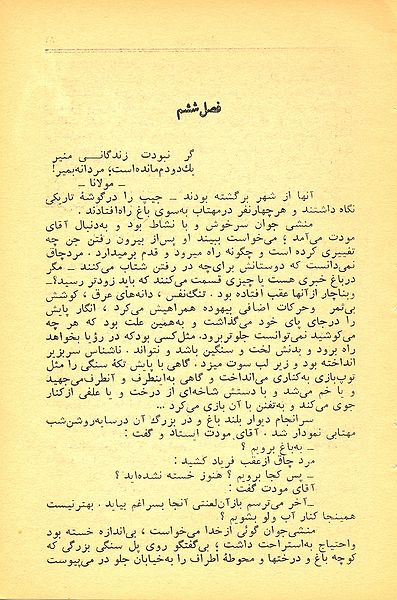 فصل ششم
گر نبودت زندگانی منیر
یك‌دودم‌مانده‌است؛ مردانه‌بمیر!
ـ مولانا ـ
آنها از شهر برگشته بودند ـ جیپ را درگوشهٔ تاریکی
نگاه داشتند و هرچهارنفر درمهتاب به‌سوی باغ راه‌افتادند .
منشی جوان سرخوش و با نشاط بود و به‌دنبال آقای
مودت می‌آمد ؛ می‌خواست ببیند او پس‌از بیرون رفتن جن چه
تغییری کرده است و چگونه راه میرود و قدم برمیدارد . مردچاق
نمی‌دانست که دوستانش برای‌چه در رفتن شتاب می‌کنند ـ مگر
درباغ خبری هست یا چیزی قسمت می‌کنند که باید زودتر رسید؟ـ
وبناچار ازآنها عقب افتاده بود . تنگ‌نفس ، دانه‌های عرق ، کوشش
بی‌ثمر وحرکات اضافی بیهوده همراهیش می‌کرد ، انگار پایش
را درجای پای خود می‌گذاشت و به‌همین علت بود که هر چه
می‌کوشید نمی‌توانست جلوتربرود. مثل‌کسی بودکه در رؤیا بخواهد
راه برود و بدنش لخت و سنگین باشد و نتواند . ناشناس سربزیر
انداخته بود و زیر لب سوت میزد . گاهی با پایش تکهٔ سنگی را مثل
توپ‌بازی به‌کناری می‌انداخت و گاهی به‌اینطرف و آنطرف‌می‌جهید
و یا خم می‌شد و با دستش شاخه‌ای از درخت و یا علفی ازکنار
جوی می‌کند و به‌تفنن با آن بازی می‌کرد ...
سرانجام دیوار بلند باغ و در بزرگ آن درسایه‌روشن‌شب
مهتابی نمودار شد . آقای مودت ایستاد و گفت :
ـ به‌باغ برویم ؟
مرد چاق ازعقب فریاد کشید :
ـ پس کجا برویم ؟ هنوز خسته نشده‌اید ؟
آقای مودت گفت :
ـ آخر می‌ترسم بازآن‌لعنتی آنجا بسراغم بیاید . بهترنیست
همینجا کنار آب ولو بشویم ؟
منشی‌جوان گوئی ازخدا می‌خواست ، بی‌اندازه خسته بود
واحتیاج به‌استراحت داشت ؛ بی‌گفتگو روی پل سنگی بزرگی که
کوچه باغ و درختها و محوطهٔ اطراف را به‌خیابان جلو در می‌پیوست